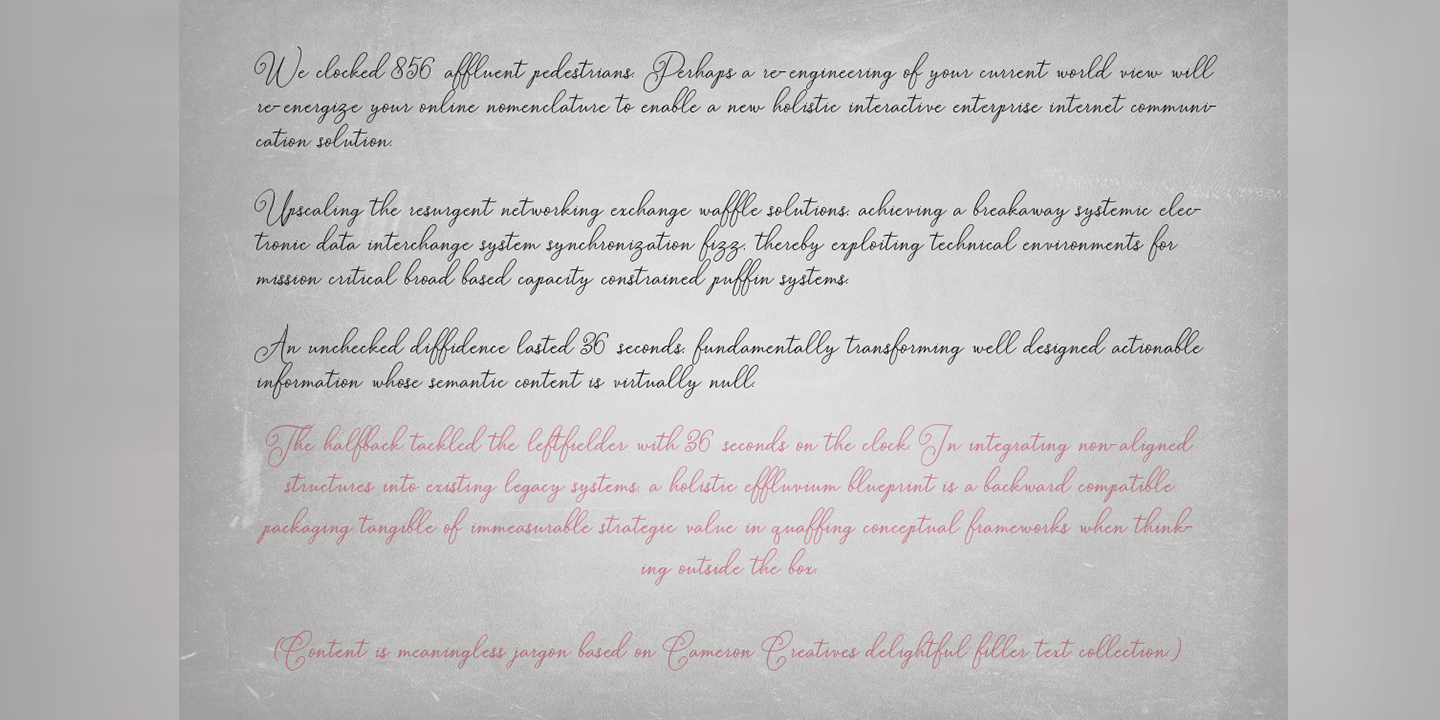 We clocked 856 affluent pedestrians. Perhaps a re-engineering of your current world view will
re-energize your online nomenclature to enable a new holistic interactive enterprise internet communi-
cation solution.
Upscaling the resurgent networking exchange waffle solutions, achieving a breakaway systemic elec-
tronic data interchange system synchronization fizz, thereby exploiting technical environments for
mission critical broad based capacity constrained puffin systems.
An unchecked diffidence lasted 36 seconds, fundamentally transforming well designed actionable
information whose semantic content is virtually null.
The halfback tackled the leftfielder with 36 seconds on the clock. In integrating non-aligned
structures into existing legacy systems, a holistic effluvium blueprint is a backward compatible
packaging tangible of immeasurable strategic value in quaffing conceptual frameworks when think-
ing outside the box.
(Content is meaningless jargon based on Cameron Creatives delightful filler text collection.)